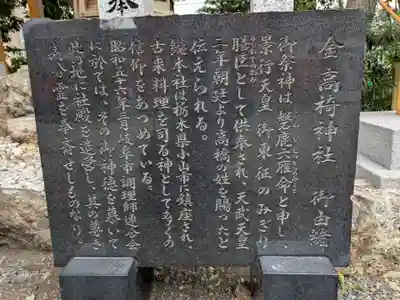 奉
金高椅神社 御由緒
御祭神は磐鹿六雁命と申し、
景行天皇 御東征のみぎり
膳臣として供奉され、天武天皇
十二年朝廷より高橋の姓を賜ったと
伝えられる。
総本社は栃木県小山市に鎮座され、
古来料理を司る神として多くの
信仰をあつめている。
昭和五十六年三月岐阜市調理師連合会
に於ては、その御神徳を真いで
此の地に社殿を造営し、其の尊き
御心霊を奉斎せしものなり。